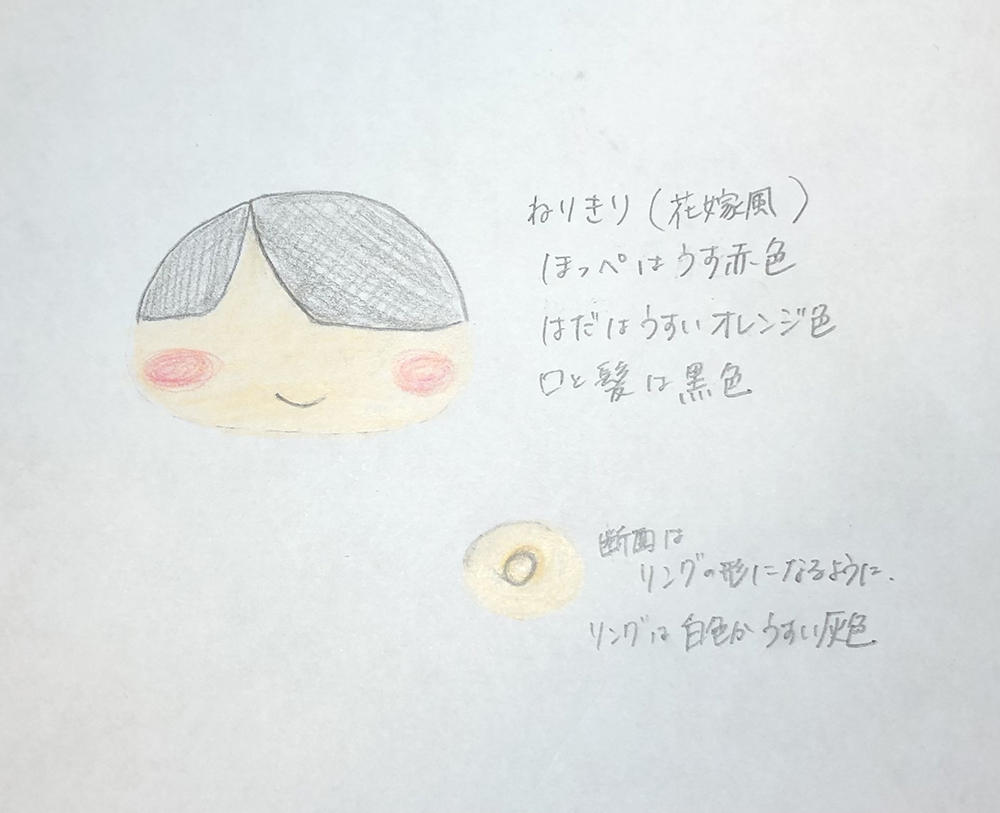 ねりきり(花嫁風)
ほっぺはうす赤色
はだはうすいオレンジ色
口と髪は黒色
断面は
リングの形になるように.
リングは白色かうすい灰色